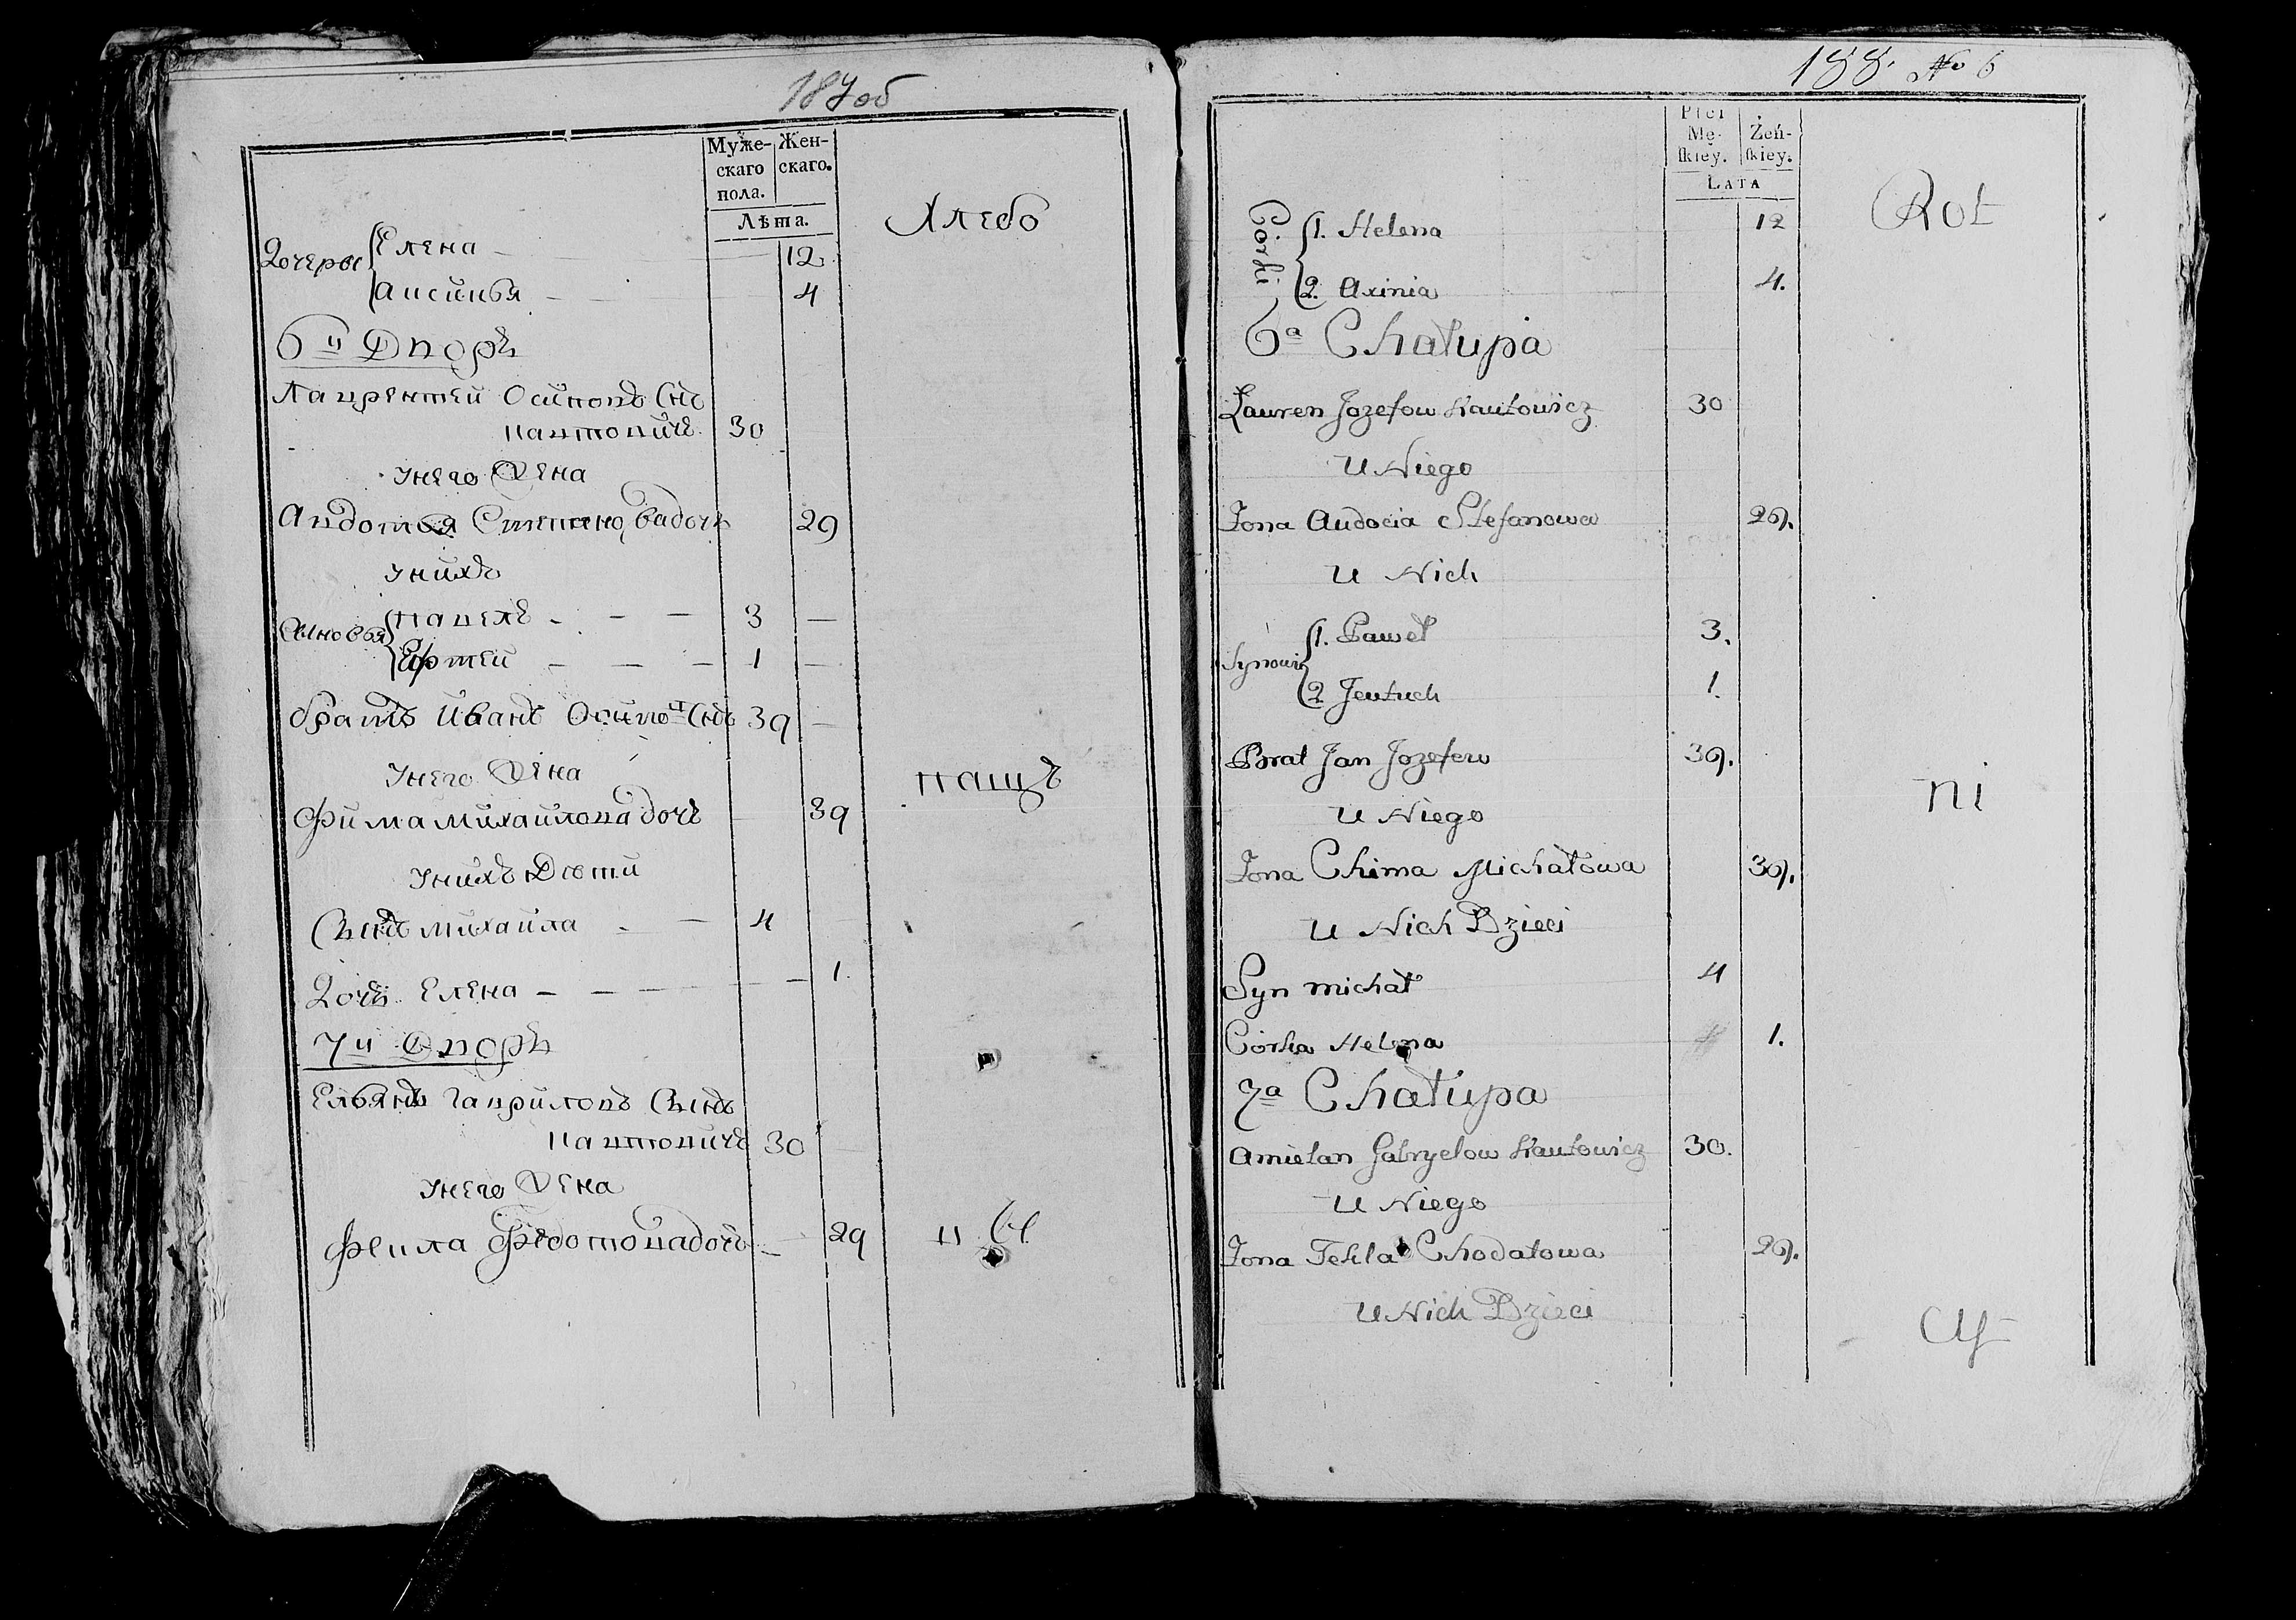 187об
Муже-
скаго
пола.
Жен-
скаго.
Лѣта.
Хлебо
Дочеры
Елена - 12
Аксинья - 4
6й Дворъ
Лаврентей Осиповъ Снъ
Картовичъ 30
Унего Жена
Авдотья Степанова дочь 29
Унихъ
Сыновья
Павелъ - - - 3 —
- - - 1 —
братъ Иванъ Осиповъ Снъ 39 —
Унего Жена
пащъ
Фима михайлова дочь 39
Унихъ Дѣти
Сынъ михайла - - 4
Дочь Елена - - - - - 1.
7й Дворъ
Емельянъ Гавриловъ Сынъ
30
Унего Жена
Фекла Федотова дочь - 29
188. No 6
Płci
Mę-
ſkiey.
Żeń-
ſkiey.
LATA
Rol
Córki
1. Helena 12
2. Axinia 4.
6a Chałupa
Lauren Jozefow Kautowicz 30
U Niego
Zona Audocia Stefanowa 29.
U Nich
Synowie
1. Paweł 3.
2. Jeutuch 1.
Brat Jan Jozefow 39.
ni
U Niego
Zona Chima Michałowa 39.
U Nich Dzieci
Syn michał 4
Córka Helena 1.
7a Chałupa
Amielan Gabryelow Kautowicz 30.
U Niego
Zona Tekla Chodatowa 29.
U Nich Dzieci
cy